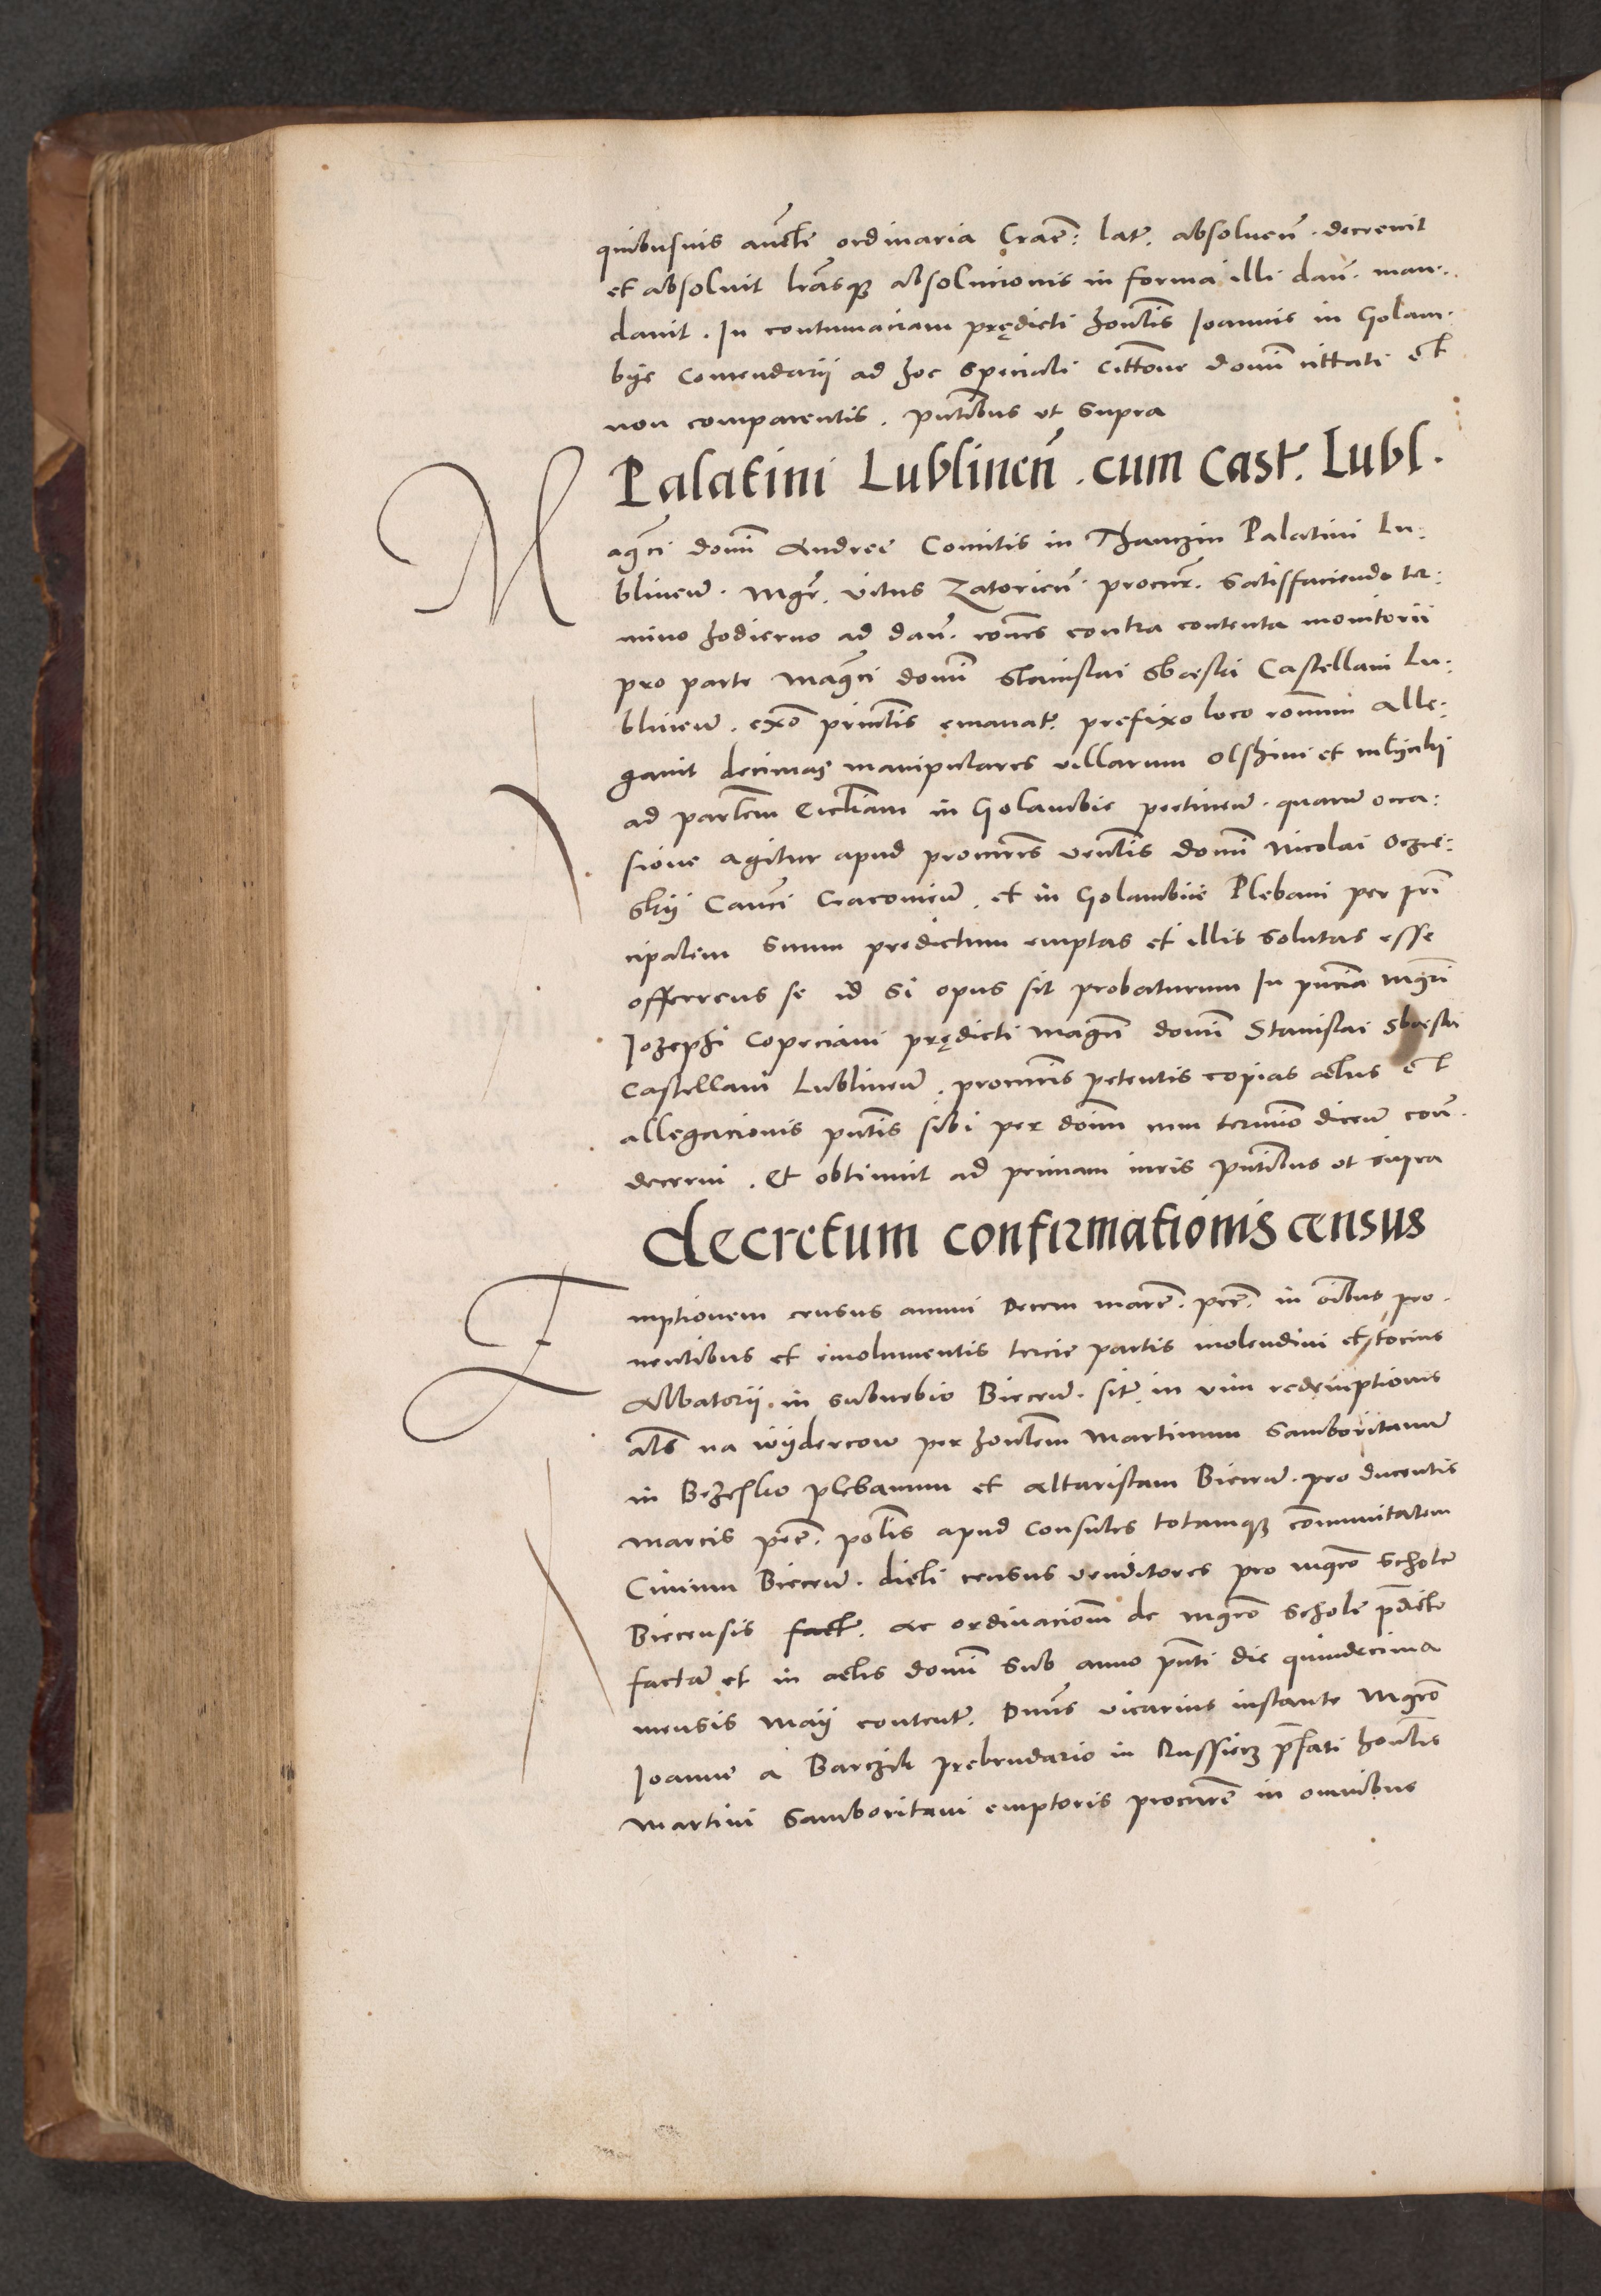 quibusvis aūcte ordinaria Crace: lat. absoluen̄. decrevit
et absoluit lrāsq absolucionis in forma illi dan̄. man-
davit. In contumaciam prędicti honlis Ioannis in Golam-
bye Comendarii ad hoc speciali cittone domī cittati et
non comparentis. pntibus ut supra
Palatini Lublinen̄. cum Cast. Lubl.
Magci domī Andree Comitis in Thanczin Palatini Lu:
blinen̄. Mgr. Vitus Zatorien̄. procur. satisfaciendo ter:
mino hodierno ad dan̄. rones contra contenta monitorii
pro parte Magci domī Stanislai Sbąski Castellani Lu:
blinen̄. exo princtis emanat. prefixo loco ronum alle:
gavit decimas manipulares villarum Olszini et
ad parlem Ecclīam in Golambie pertinen̄. quarum occa:
sione agitur apud procurēs venlis domī Nicolai Oczie:
skij Canci Cracovien̄. et in Golambiie Plebani per prī
cipalem suum predictum emptas et illis solutas esse
offerens se id si opus sit probaturum In pncia mgri
Iozephi Copeciani prędicti magn̄ domī Stanislai Sbąski
Castellani Lublinen̄. procuris petentis copias actus et
allegacionis pntis sibi per dōinm cum termino dicen̄ con̄.
decerni. Et obtinuit ad primam iuris pntibus ut supra
decretum confirmationis census
Emptionem census annui Decem marc. pec. in oībus pro-
uentibus et emolumentis tercie partis molendini et tocius
Albatorii in suburbio Biecen̄. sit. in vim redemptionis
als na wijdercow per honlem Martinum Samboritanum
in Bezesko plebanum et altaristam Biecen̄. pro ducentis
marcis pec. polis apud Consules totamq communitatem
Civium Biecen̄. dicti census venditores pro mgro schole
Biecensis fact. ac ordinaciom de mgro schole p̄dicto
factam et in actis domī sub anno pnti die quindecima
mensis Maij content. Dnus vicarius instante Mgro
Ioanne a Barczik prebendario in Russiecz p̄fati honlis
Martini Samboritani emptoris procure in omnibus